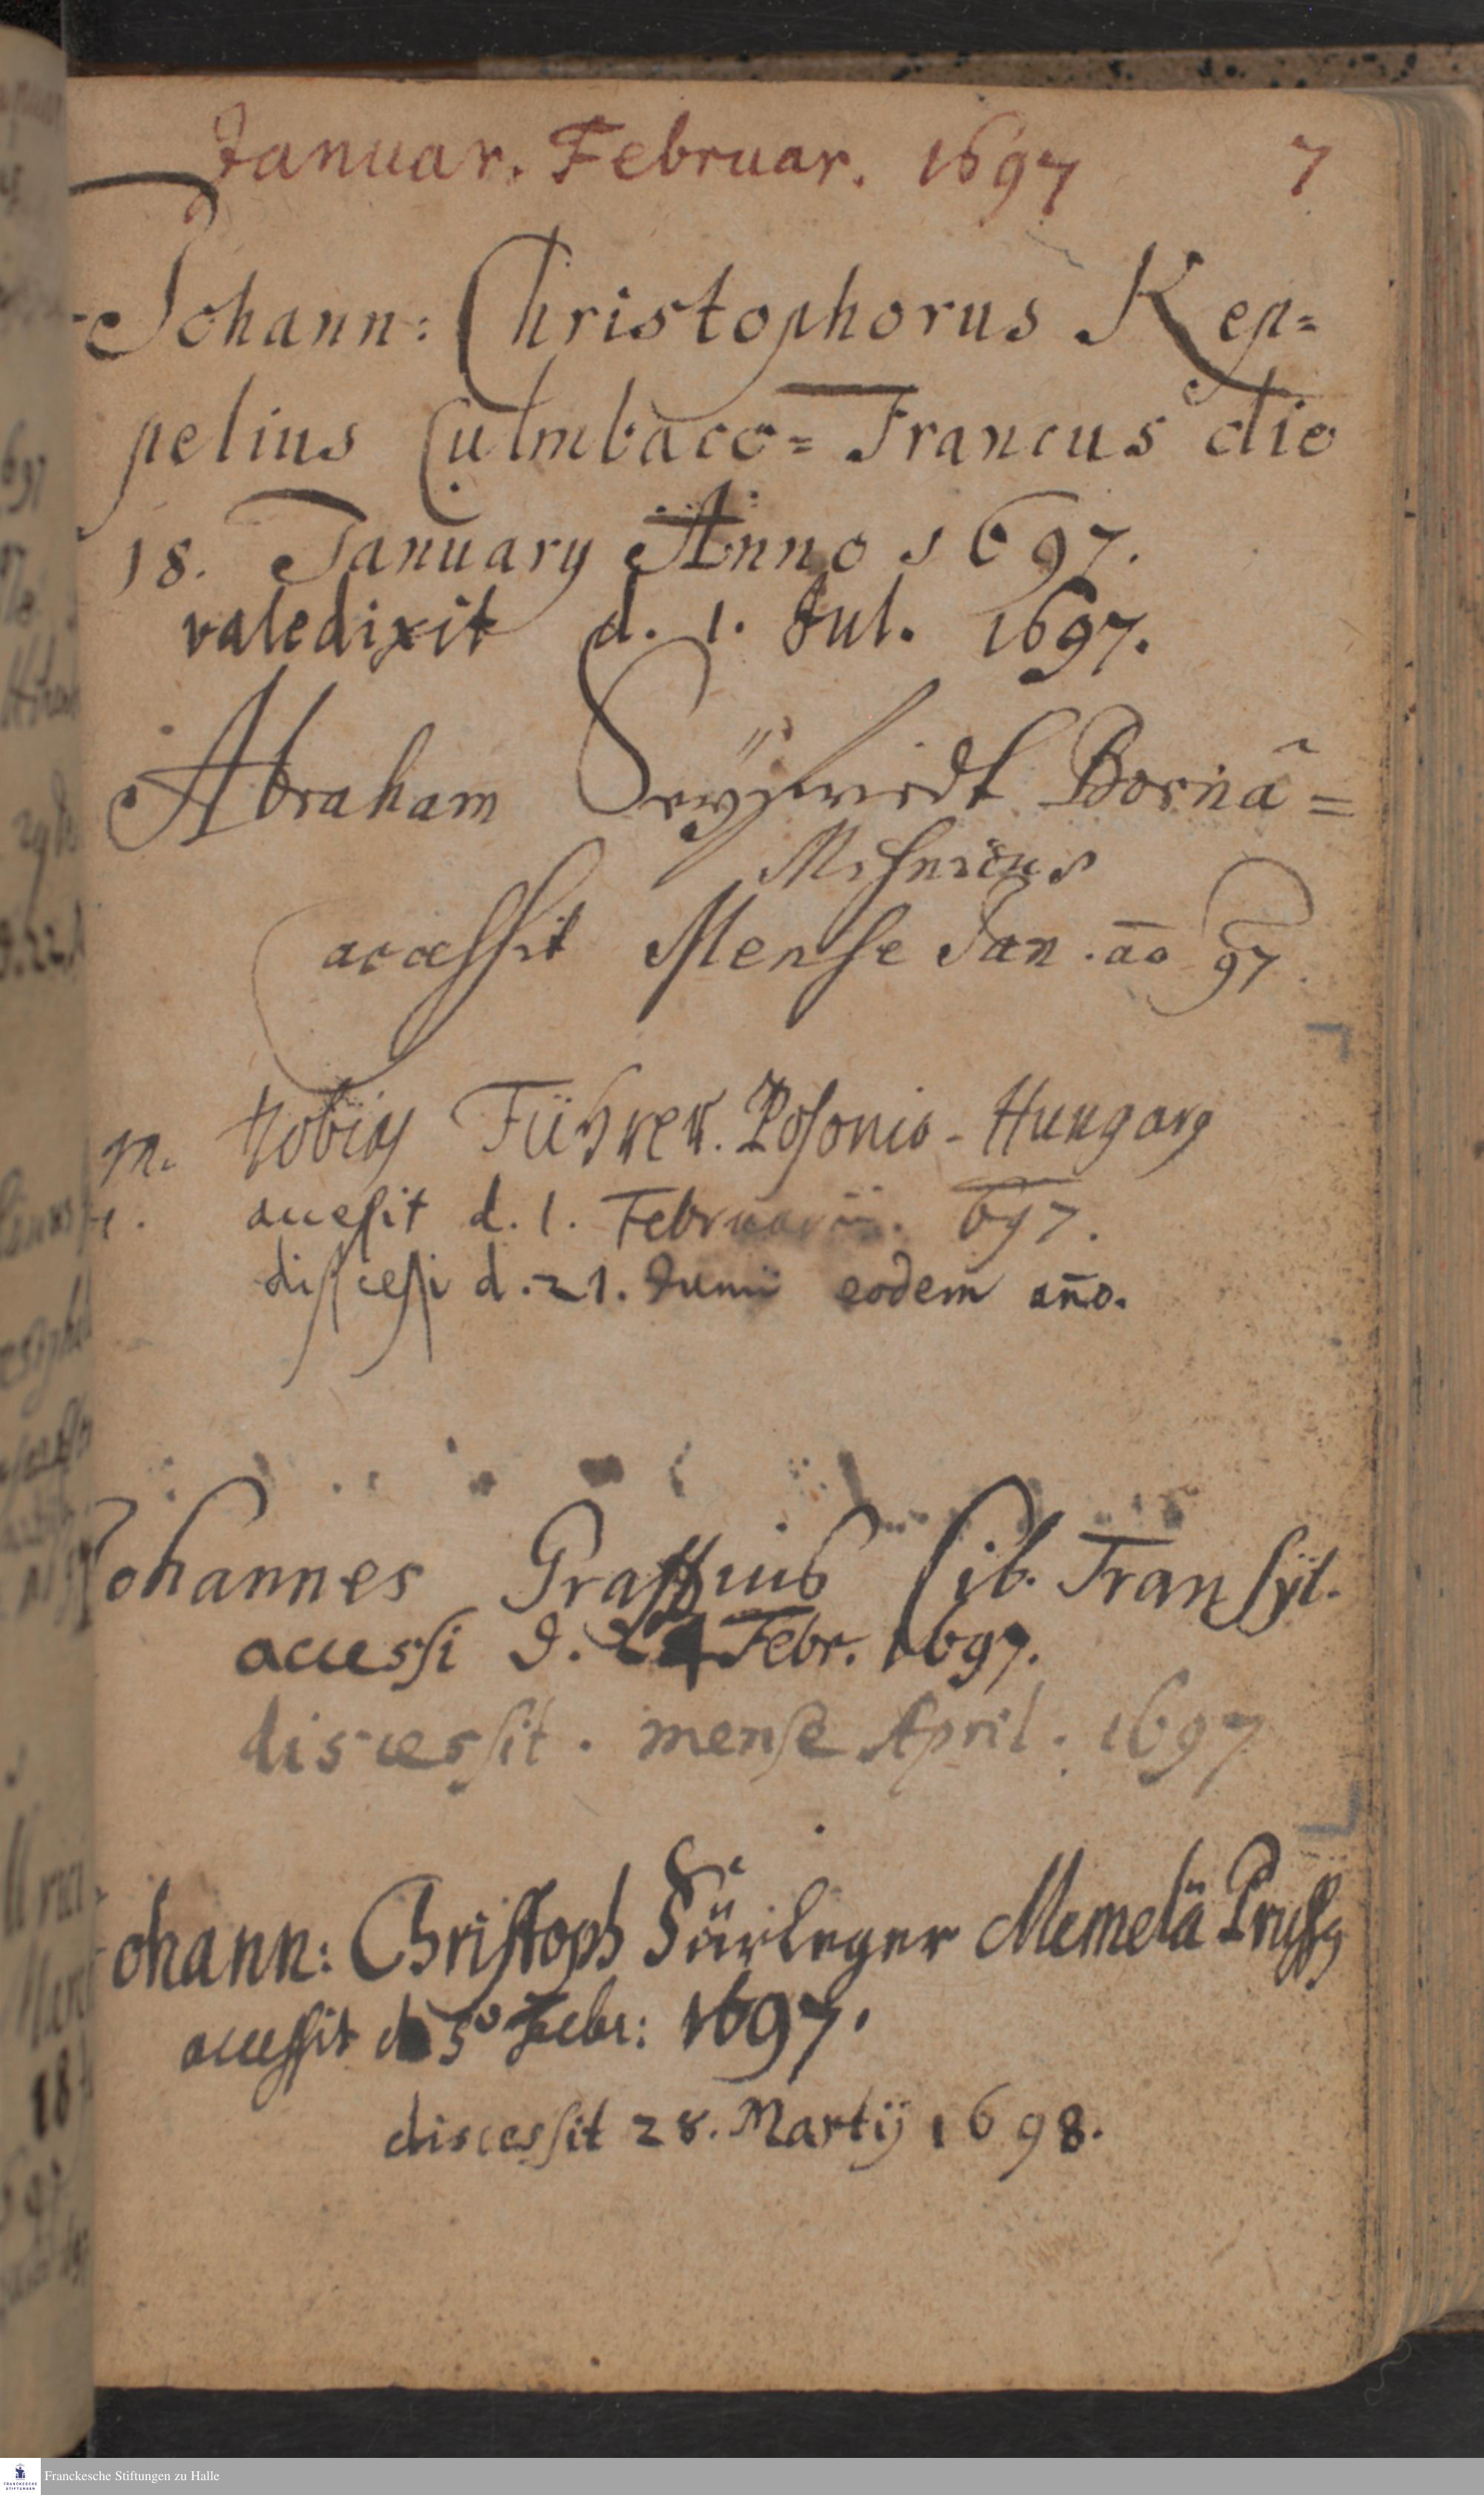 Januar. Februar. 1697 7
Johann: Christophorus Kep=
pelius Culmbaco= Francus die
18. January Anno 1697.
valedixit d. 1. Jul. 1697.
Abraham Bornâ=
Misnicus
accessit Mense Jan. ao 97.
m. Tobias Führer. Posonio - Hungarg
accesit d. 1. Februarii. 697.
discessi d. 21. Junii eodem año.
Johannes Graffius Cib. Transyl.
accessi d. 24 Febr. 1697.
discessit. mense April. 1697
Johann: Christoph Fürleger Memelâ Prussg
accessit d 5° Febr: 1697.
discessit 28. Martij 1698.
FRANCKESCHE
STIFTUNGEN
Franckesche Stiftungen zu Halle